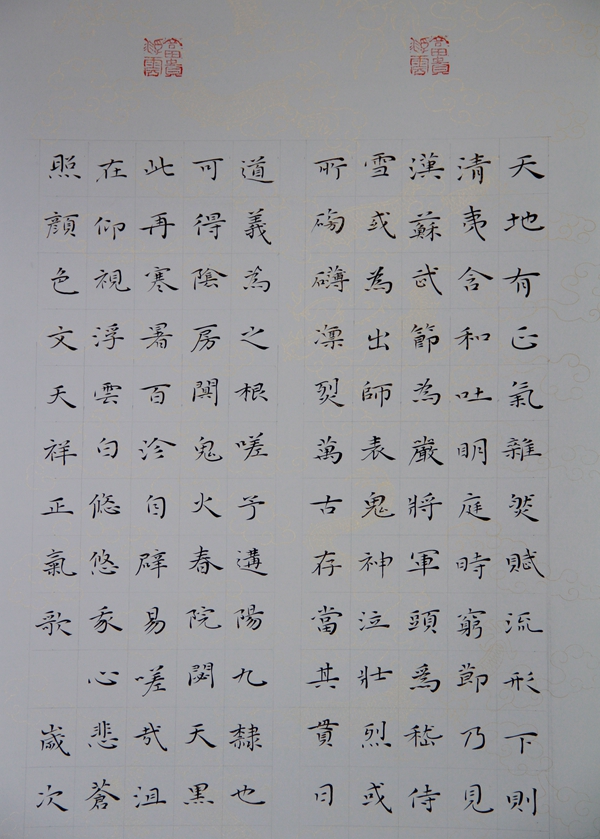 富貴浮雲
富貴浮雲
天地有正氣雜然賦流形下則
清夷含和吐明庭時窮節乃見
漢蘇武節為嚴將軍頭為嵇侍
雪或為出師表鬼神泣壯烈或
所磅礴凜烈萬古存當其貫日
道義為之根嗟予遘陽九隸也
可得陰房闃鬼火春院閟天黑
此再寒暑百沴自辟易嗟哉沮
在仰視浮雲白悠悠我心悲蒼
照顏色文天祥正氣歌 歲次